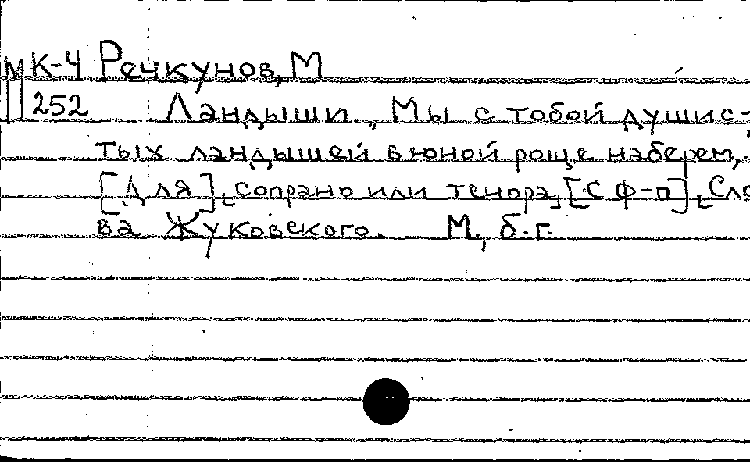 мК-4 Речкунов, М
252 Ландыши „Мы с тобой душис-
тых ландышей в юной роще наберем,
[Для] сопрано или тенора [с ф-п]. Сло
ва Жуковского. М., б.г.